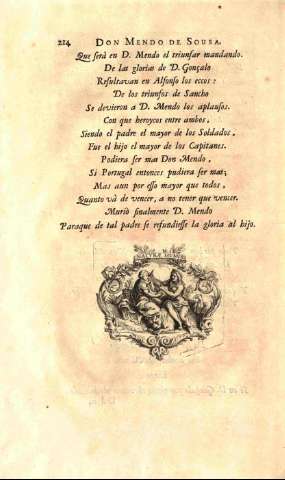 214 DON MENDO DE SOUSA.
Que será en D. Mendo el triunfar mandando.
De las glorias de D. Gonçalo
Resultavan en Alfonso los eccos:
De los triunfos de Sancho
Se devieron a D. Mendo los aplausos.
Con que heroycos entre ambos,
Siendo el padre el mayor de los Soldados,
Fue el hijo el mayor de los Capitanes.
Pudiera ser mas Don Mendo,
Si Portugal entonces pudiera ser mas;
Mas aun por esso mayor que todos,
Quanto và de vencer, a no tener que vencer.
Murió finalmente D. Mendo
Paraque de tal padre se refundiesse la gloria al hijo.